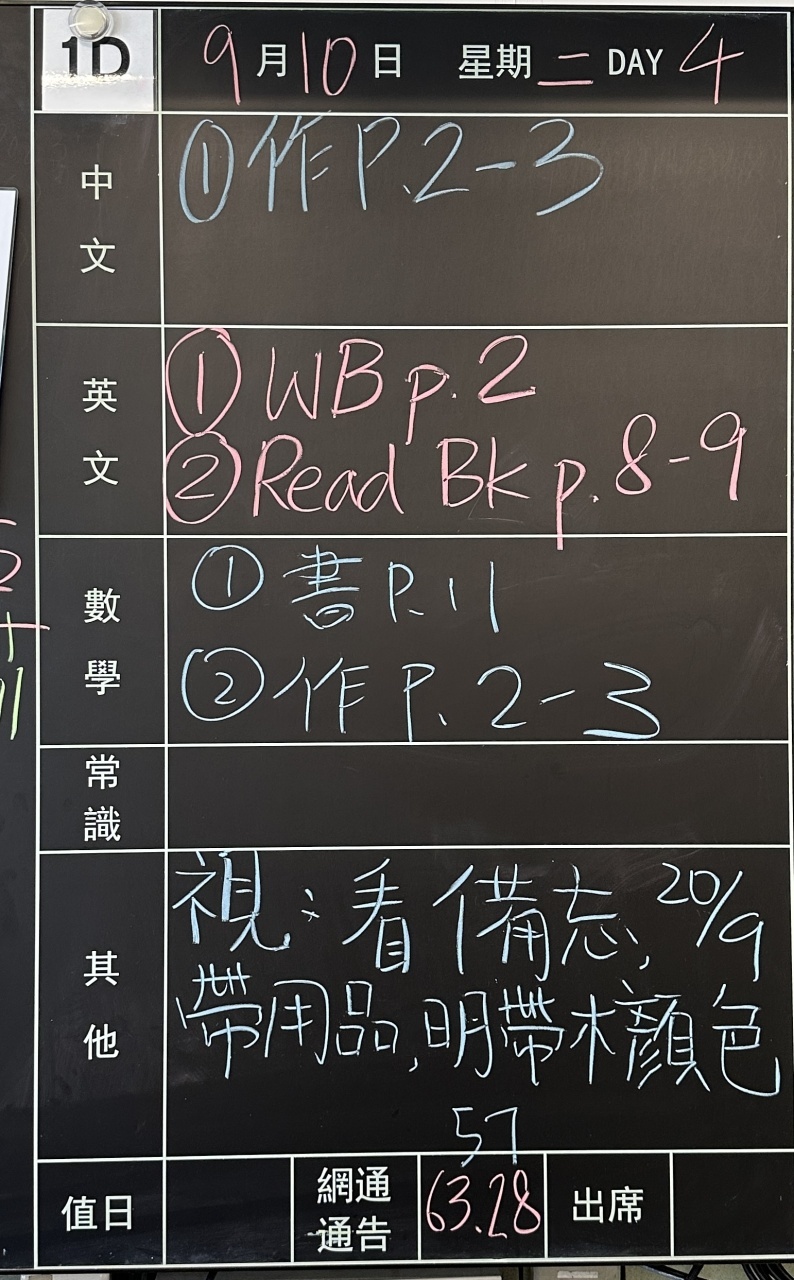 1D 9月10日 星期二 DAY 4
中文
①作P.2-3
英文
①WB p.2
②Read Bk p.8-9
數學
①書P.11
②作P.2-3
常識
其他
視：看備忘，20/9
帶用品，明帶木顏色
57
值日 網通通告 63.28 出席
2
+
11